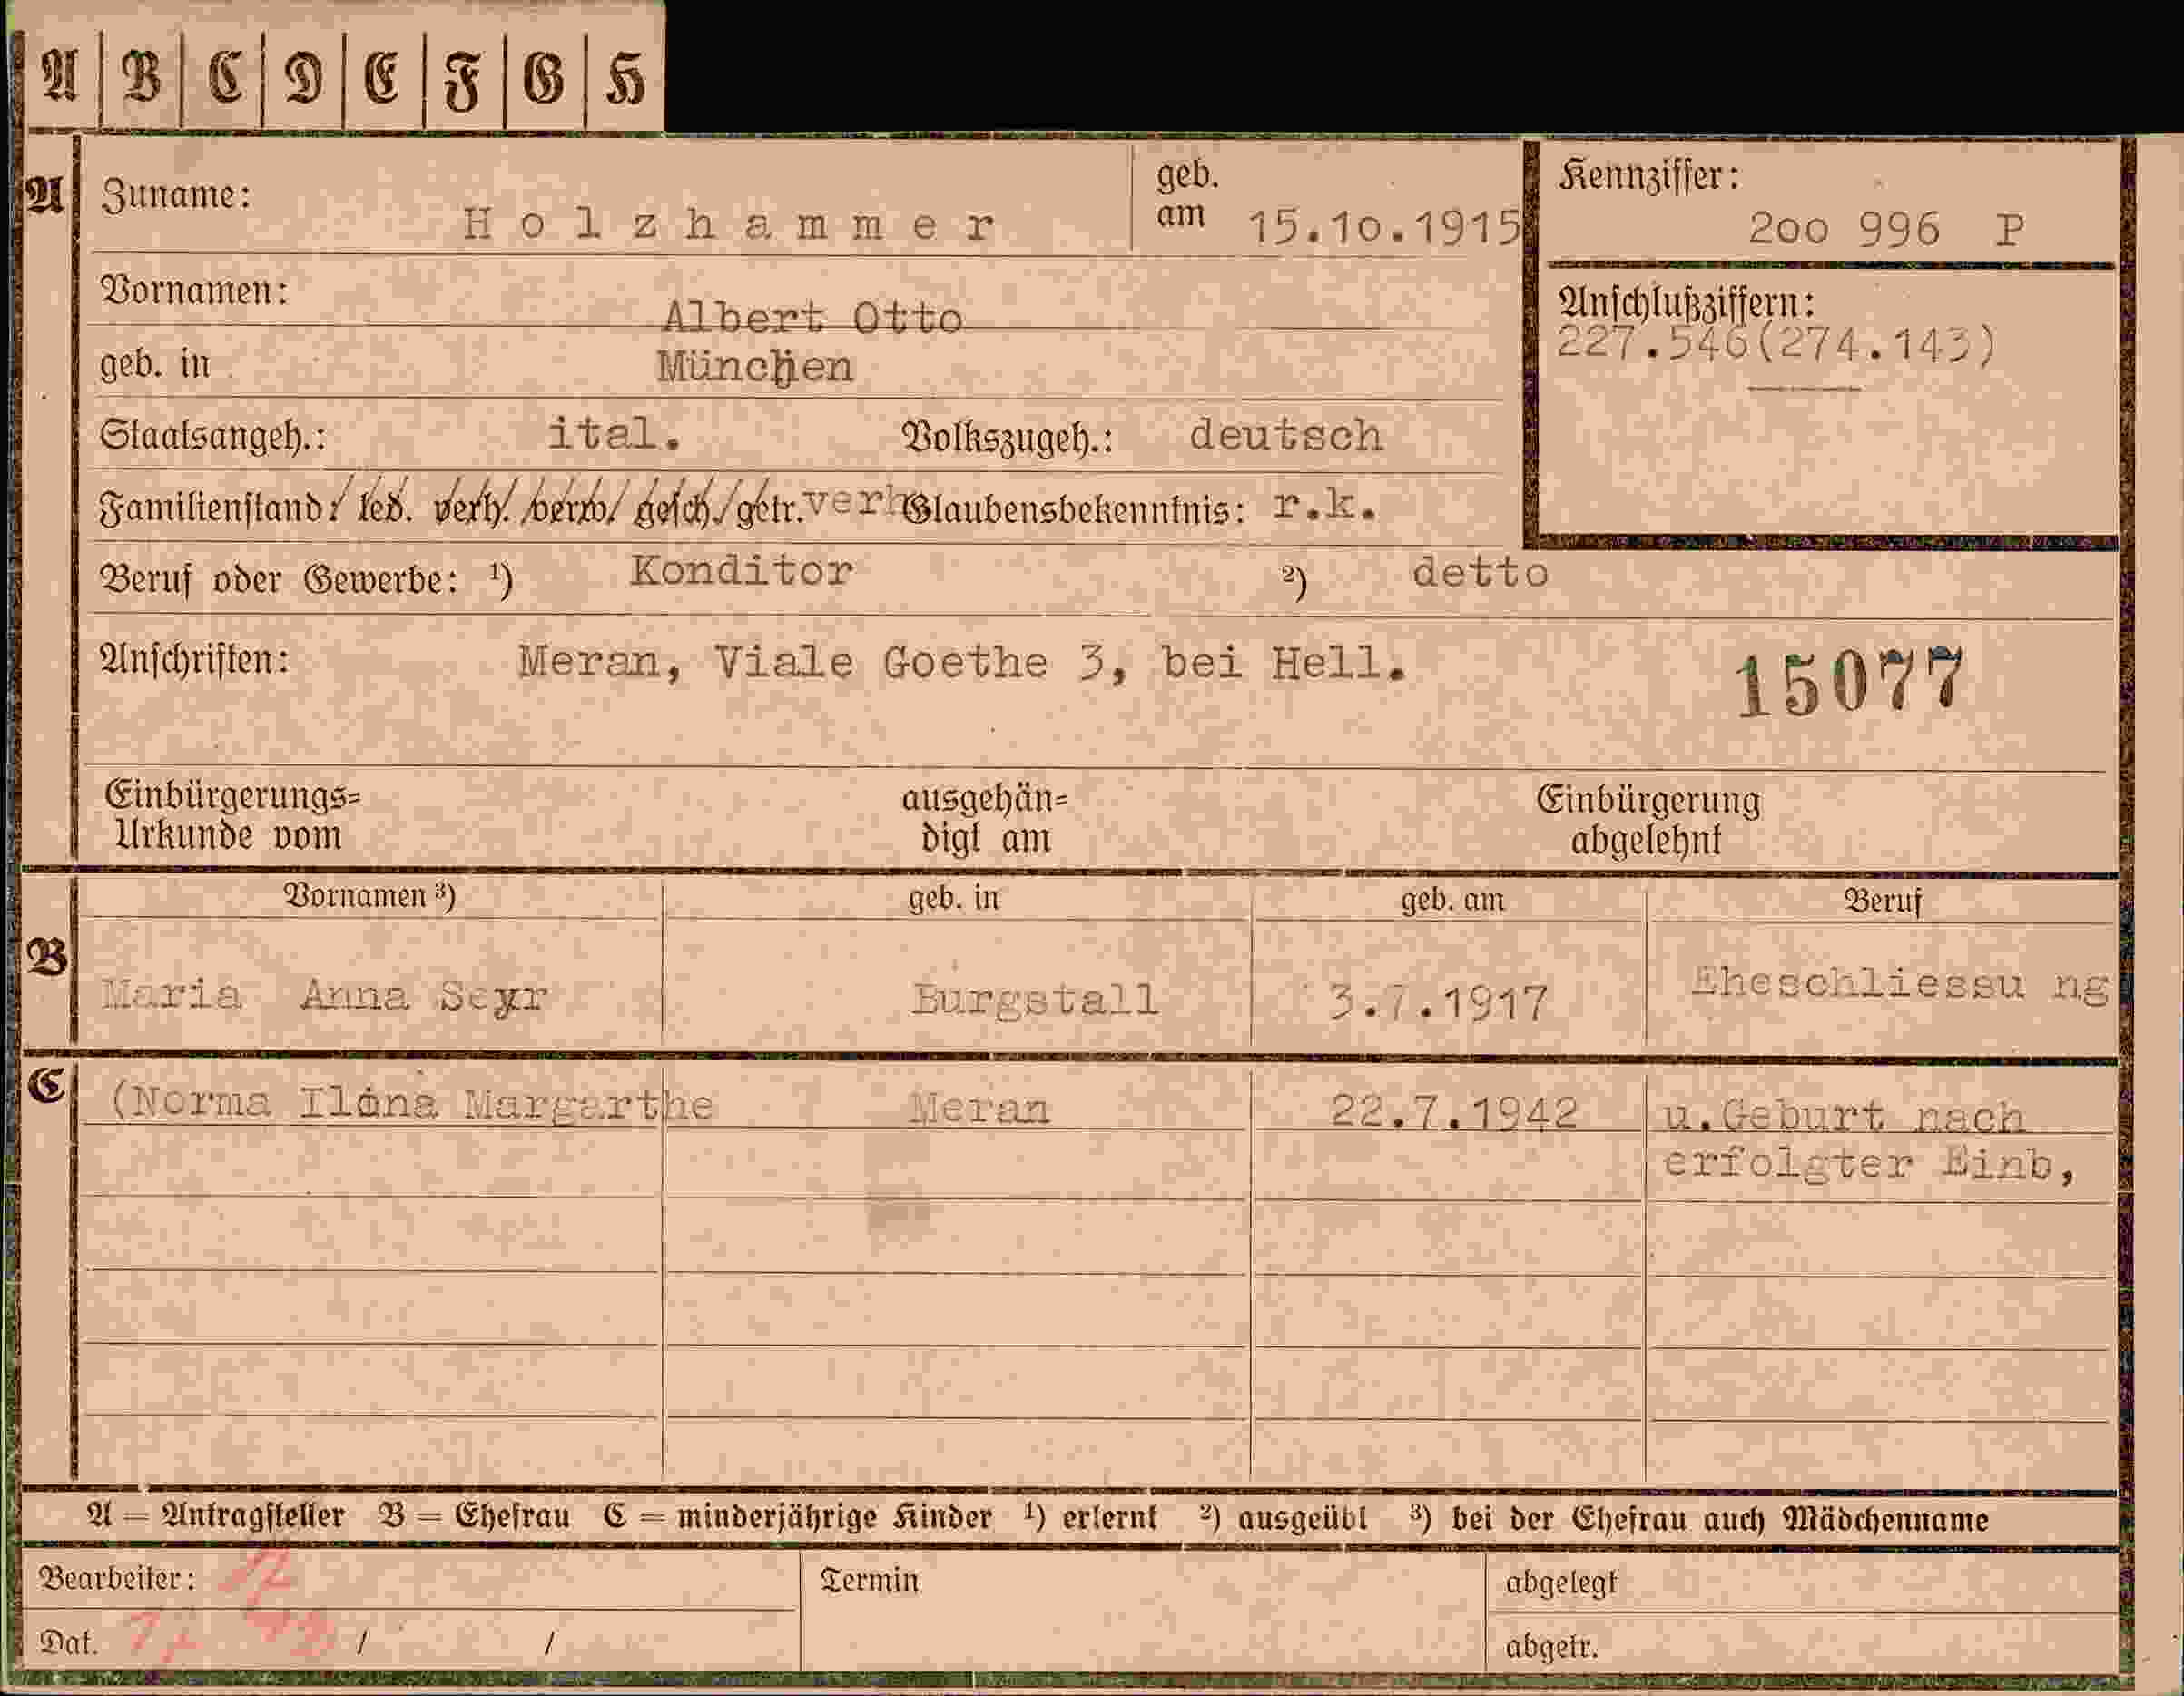 A B C D E F G H
A Zuname: Holzhammer geb. am 15.10.1915 Kennziffer: 2oo 996 P
Vornamen: Albert Otto Anschlußziffern: 227.546(274.143)
geb. in München
Staatsangeh.: ital. Volkszugeh.: deutsch
Familienstand: led. verh. verw. gesch./getr. verh Glaubensbekenntnis: r.k.
Beruf oder Gewerbe: ¹) Konditor ²) detto
Anschriften: Meran, Viale Goethe 3, bei Hell. 15077
Einbürgerungs= ausgehän= Einbürgerung
Urkunde vom digt am abgelehnt
Vornamen ³) geb. in geb. am Beruf
B Maria Anna Seyr Burgstall 3.7.1917 Eheschliessu ng
C (Norma Ilona Margarthe Meran 22.7.1942 u.Geburt nach
erfolgter Einb,
A = Antragsteller B = Ehefrau C = minderjährige Kinder ¹) erlernt ²) ausgeübt ³) bei der Ehefrau auch Mädchenname
Bearbeiter: Termin abgelegt
Dat. / / abgetr.